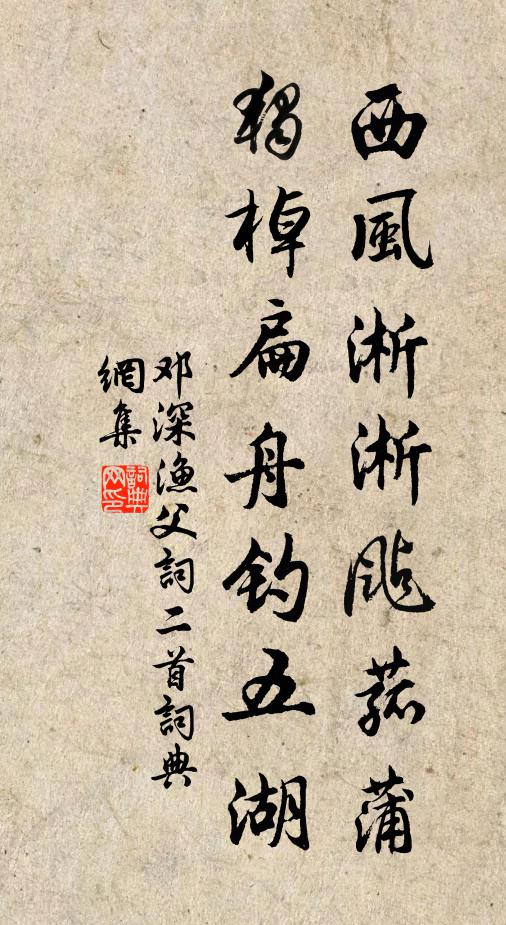 西風淅淅颭菰蒲
獨棹扁舟釣五湖
邓深漁父詞二首詞典
網集
詞典網印